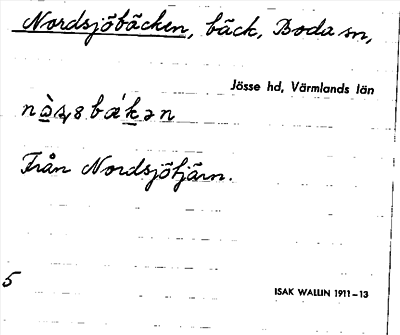 Nordsjöbäcken, bäck, Boda sn,
Jösse hd, Värmlands län
Från Nordsjötjärn.
5
ISAK WALLIN 1911–13